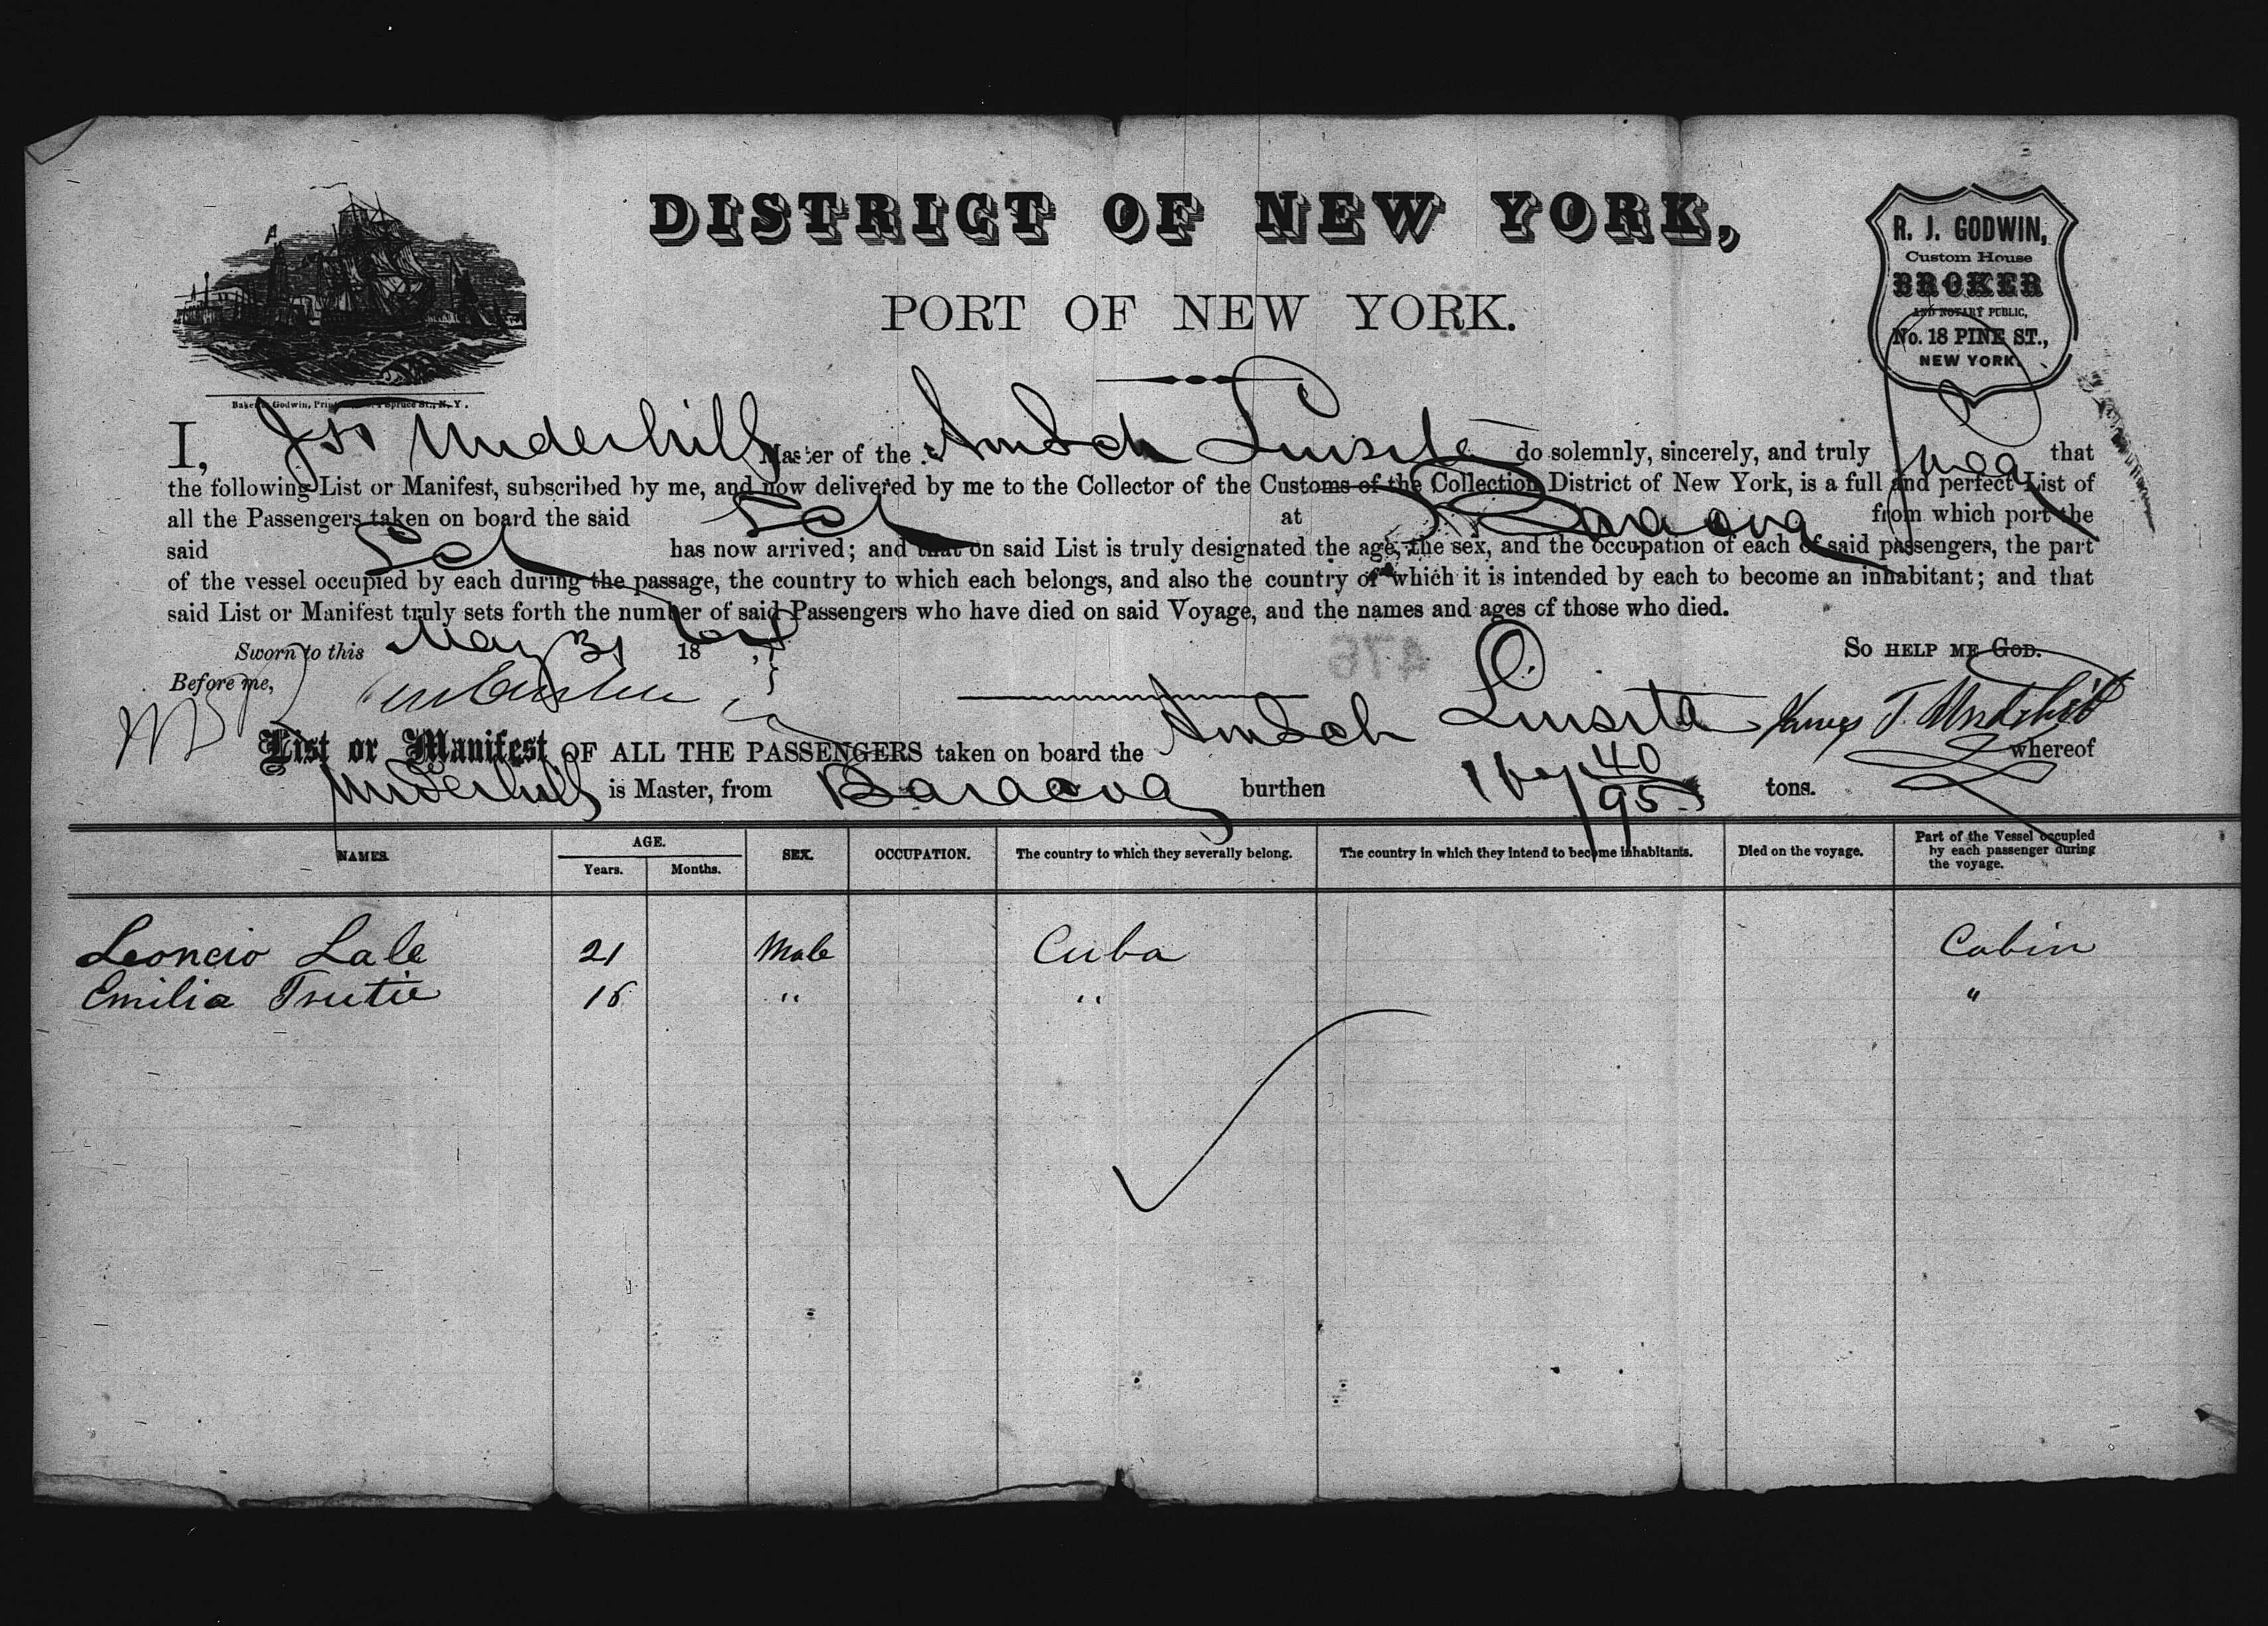 DISTRICT OF NEW YORK,
PORT OF NEW YORK.
R. J. GODWIN,
Custom House
BROKER
AND NOTARY PUBLIC,
No. 18 PINE ST.,
NEW YORK.
Baker & Godwin, Printers, Spruce St., N. Y.
I, Jas Underhill Master of the Am Sch Luisita do solemnly, sincerely, and truly swear that
the following List or Manifest, subscribed by me, and now delivered by me to the Collector of the Customs of the Collection District of New York, is a full and perfect List of
all the Passengers taken on board the said Sch at Baracoa from which port the
said Sch has now arrived; and that on said List is truly designated the age, the sex, and the occupation of each of said passengers, the part
of the vessel occupied by each during the passage, the country to which each belongs, and also the country of which it is intended by each to become an inhabitant; and that
said List or Manifest truly sets forth the number of said Passengers who have died on said Voyage, and the names and ages of those who died.
Sworn to this May 31 18
476
SO HELP ME GOD.
Before me,
James T. Underhill
List or Manifest OF ALL THE PASSENGERS taken on board the Am Sch Luisita whereof
Underhill is Master, from Baracoa burthen 40/95 tons.
NAMES. AGE. SEX. OCCUPATION. The country to which they severally belong. The country in which they intend to become inhabitants. Died on the voyage. Part of the Vessel occupied by each passenger during the voyage.
Years. Months.
Leoncio Lale 21 Male Cuba Cabin
Emilia 16 " " "